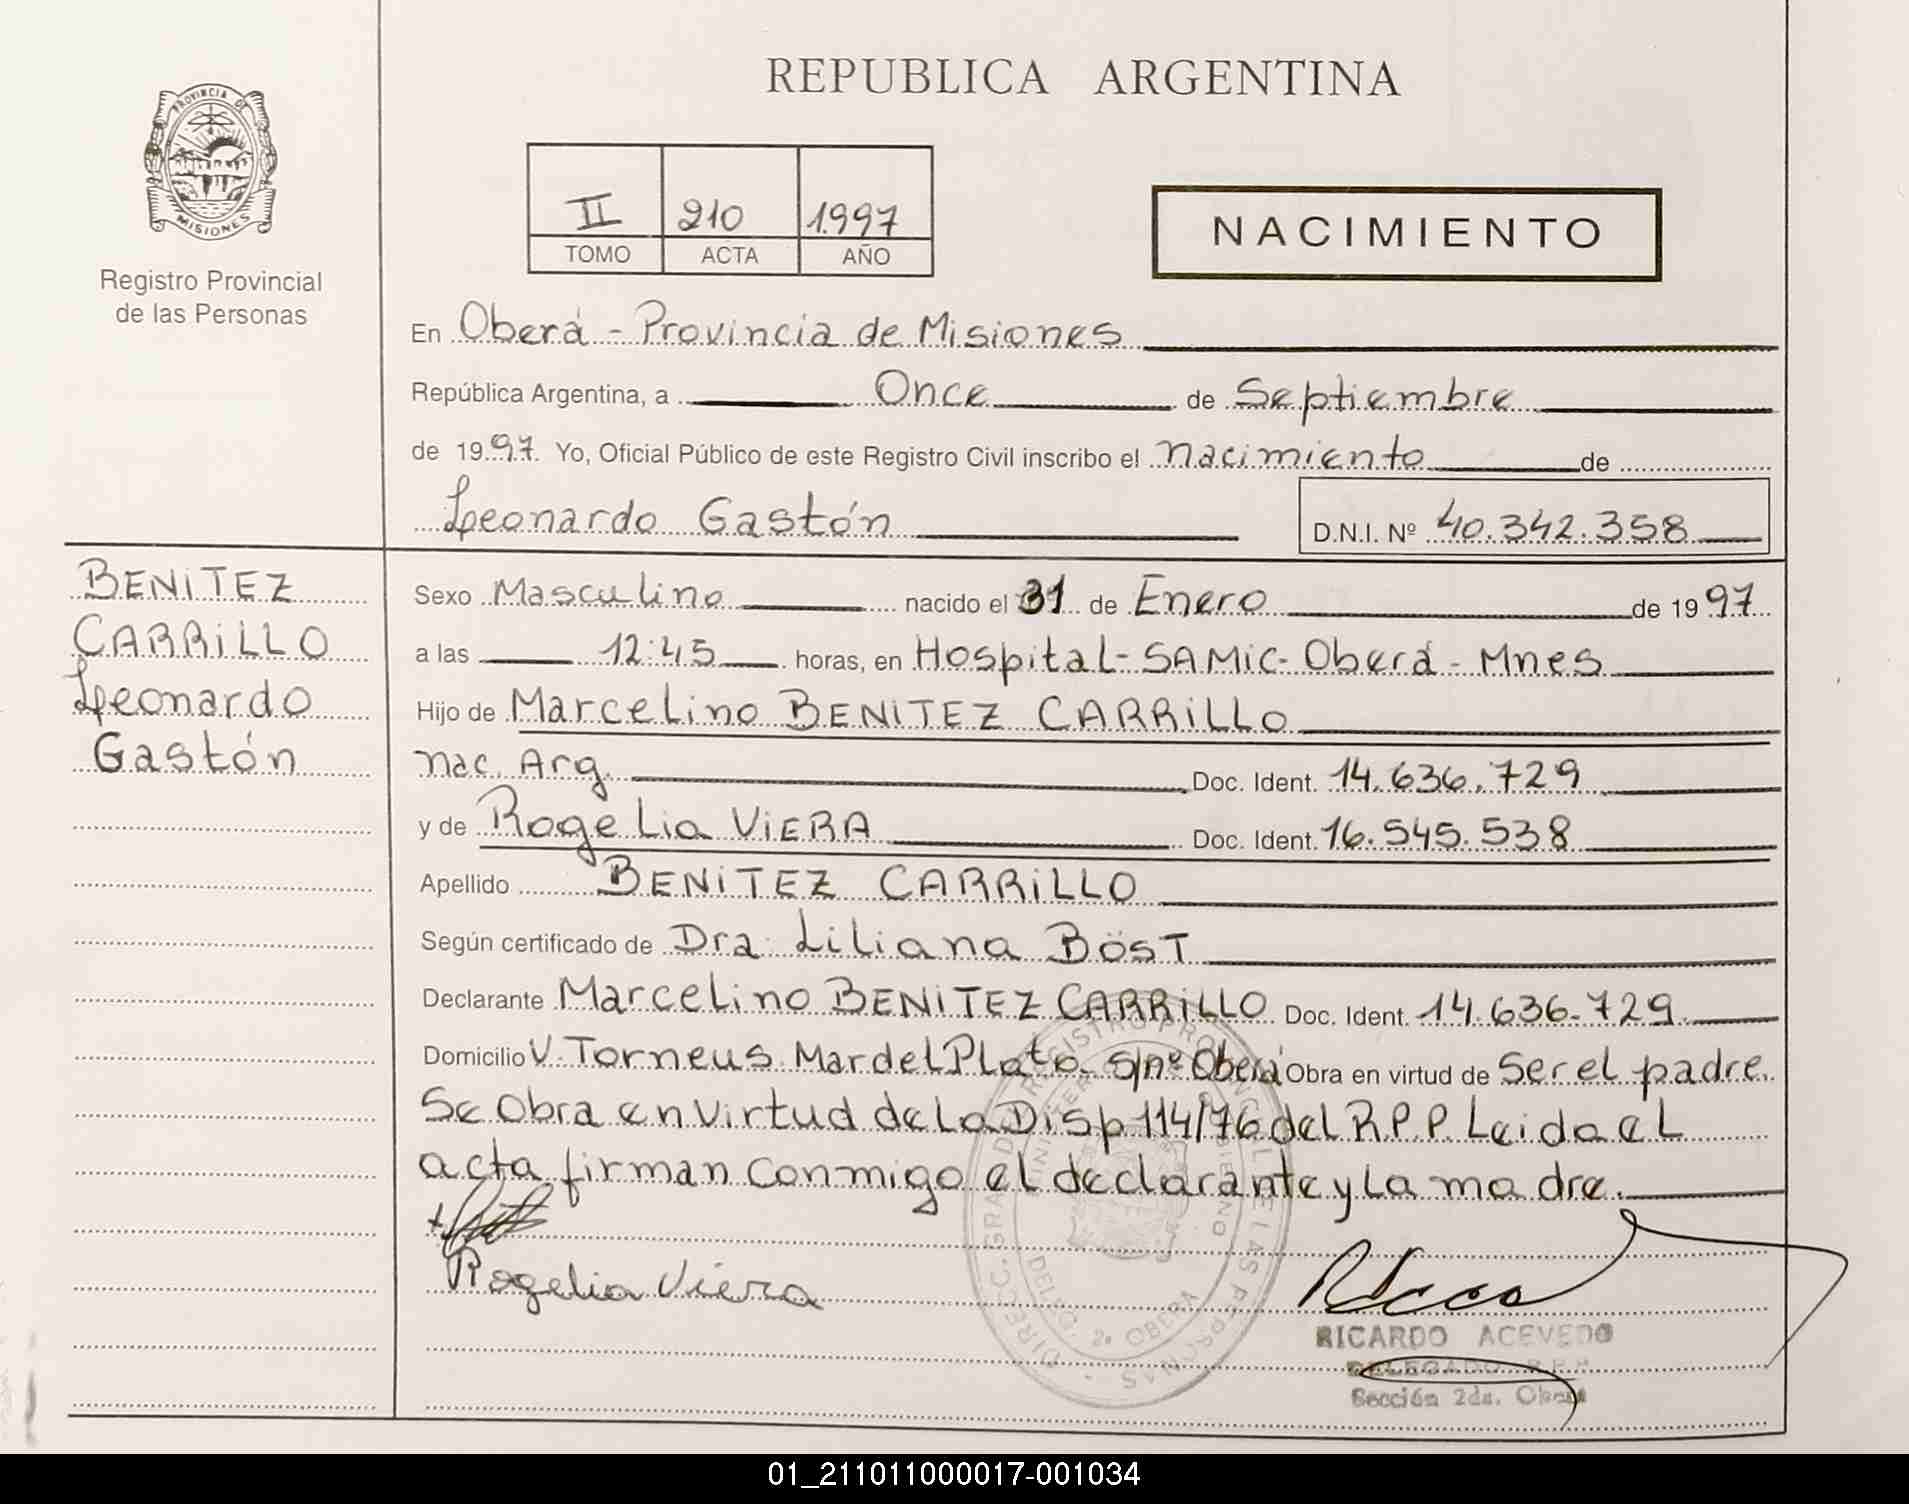 PROVINCIA DE
MISIONES
Registro Provincial
de las Personas
REPUBLICA ARGENTINA
II 210 1.997
TOMO ACTA AÑO
NACIMIENTO
En Oberá - Provincia de Misiones
República Argentina, a Once de Septiembre
de 1997. Yo, Oficial Público de este Registro Civil inscribo el nacimiento de
Leonardo Gastón D.N.I. Nº 40.342.358
BENITEZ
CARRiLLO
Leonardo
Gastón
Sexo Masculino nacido el 31 de Enero de 1997
a las 12:45 horas, en Hospital - SAMiC - Oberá - Mnes
Hijo de Marcelino BENITEZ CARRiLLO
nac. Arg. Doc. Ident. 14.636.729
y de Rogelia ViERA Doc. Ident. 16.545.538
Apellido BENiTEZ CARRiLLO
Según certificado de Dra. Liliana BösT
Declarante Marcelino BENiTEZ CARRiLLO Doc. Ident. 14.636.729
Domicilio V. Torneus Mar del Plata s/nº Oberá Obra en virtud de Ser el padre.
Se Obra en virtud de La Disp 114/76 del R.P.P. Leida eL
acta firman conmigo el declarante y La madre.
Rogelia Viera
RICARDO ACEVEDO
DELEGADO R.P.P.
Sección 2da. Oberá
DIREC. GRAL DEL REGISTRO PROVINCIAL DE LAS PERSONAS
DELEG. 2ª OBERA
01_211011000017-001034